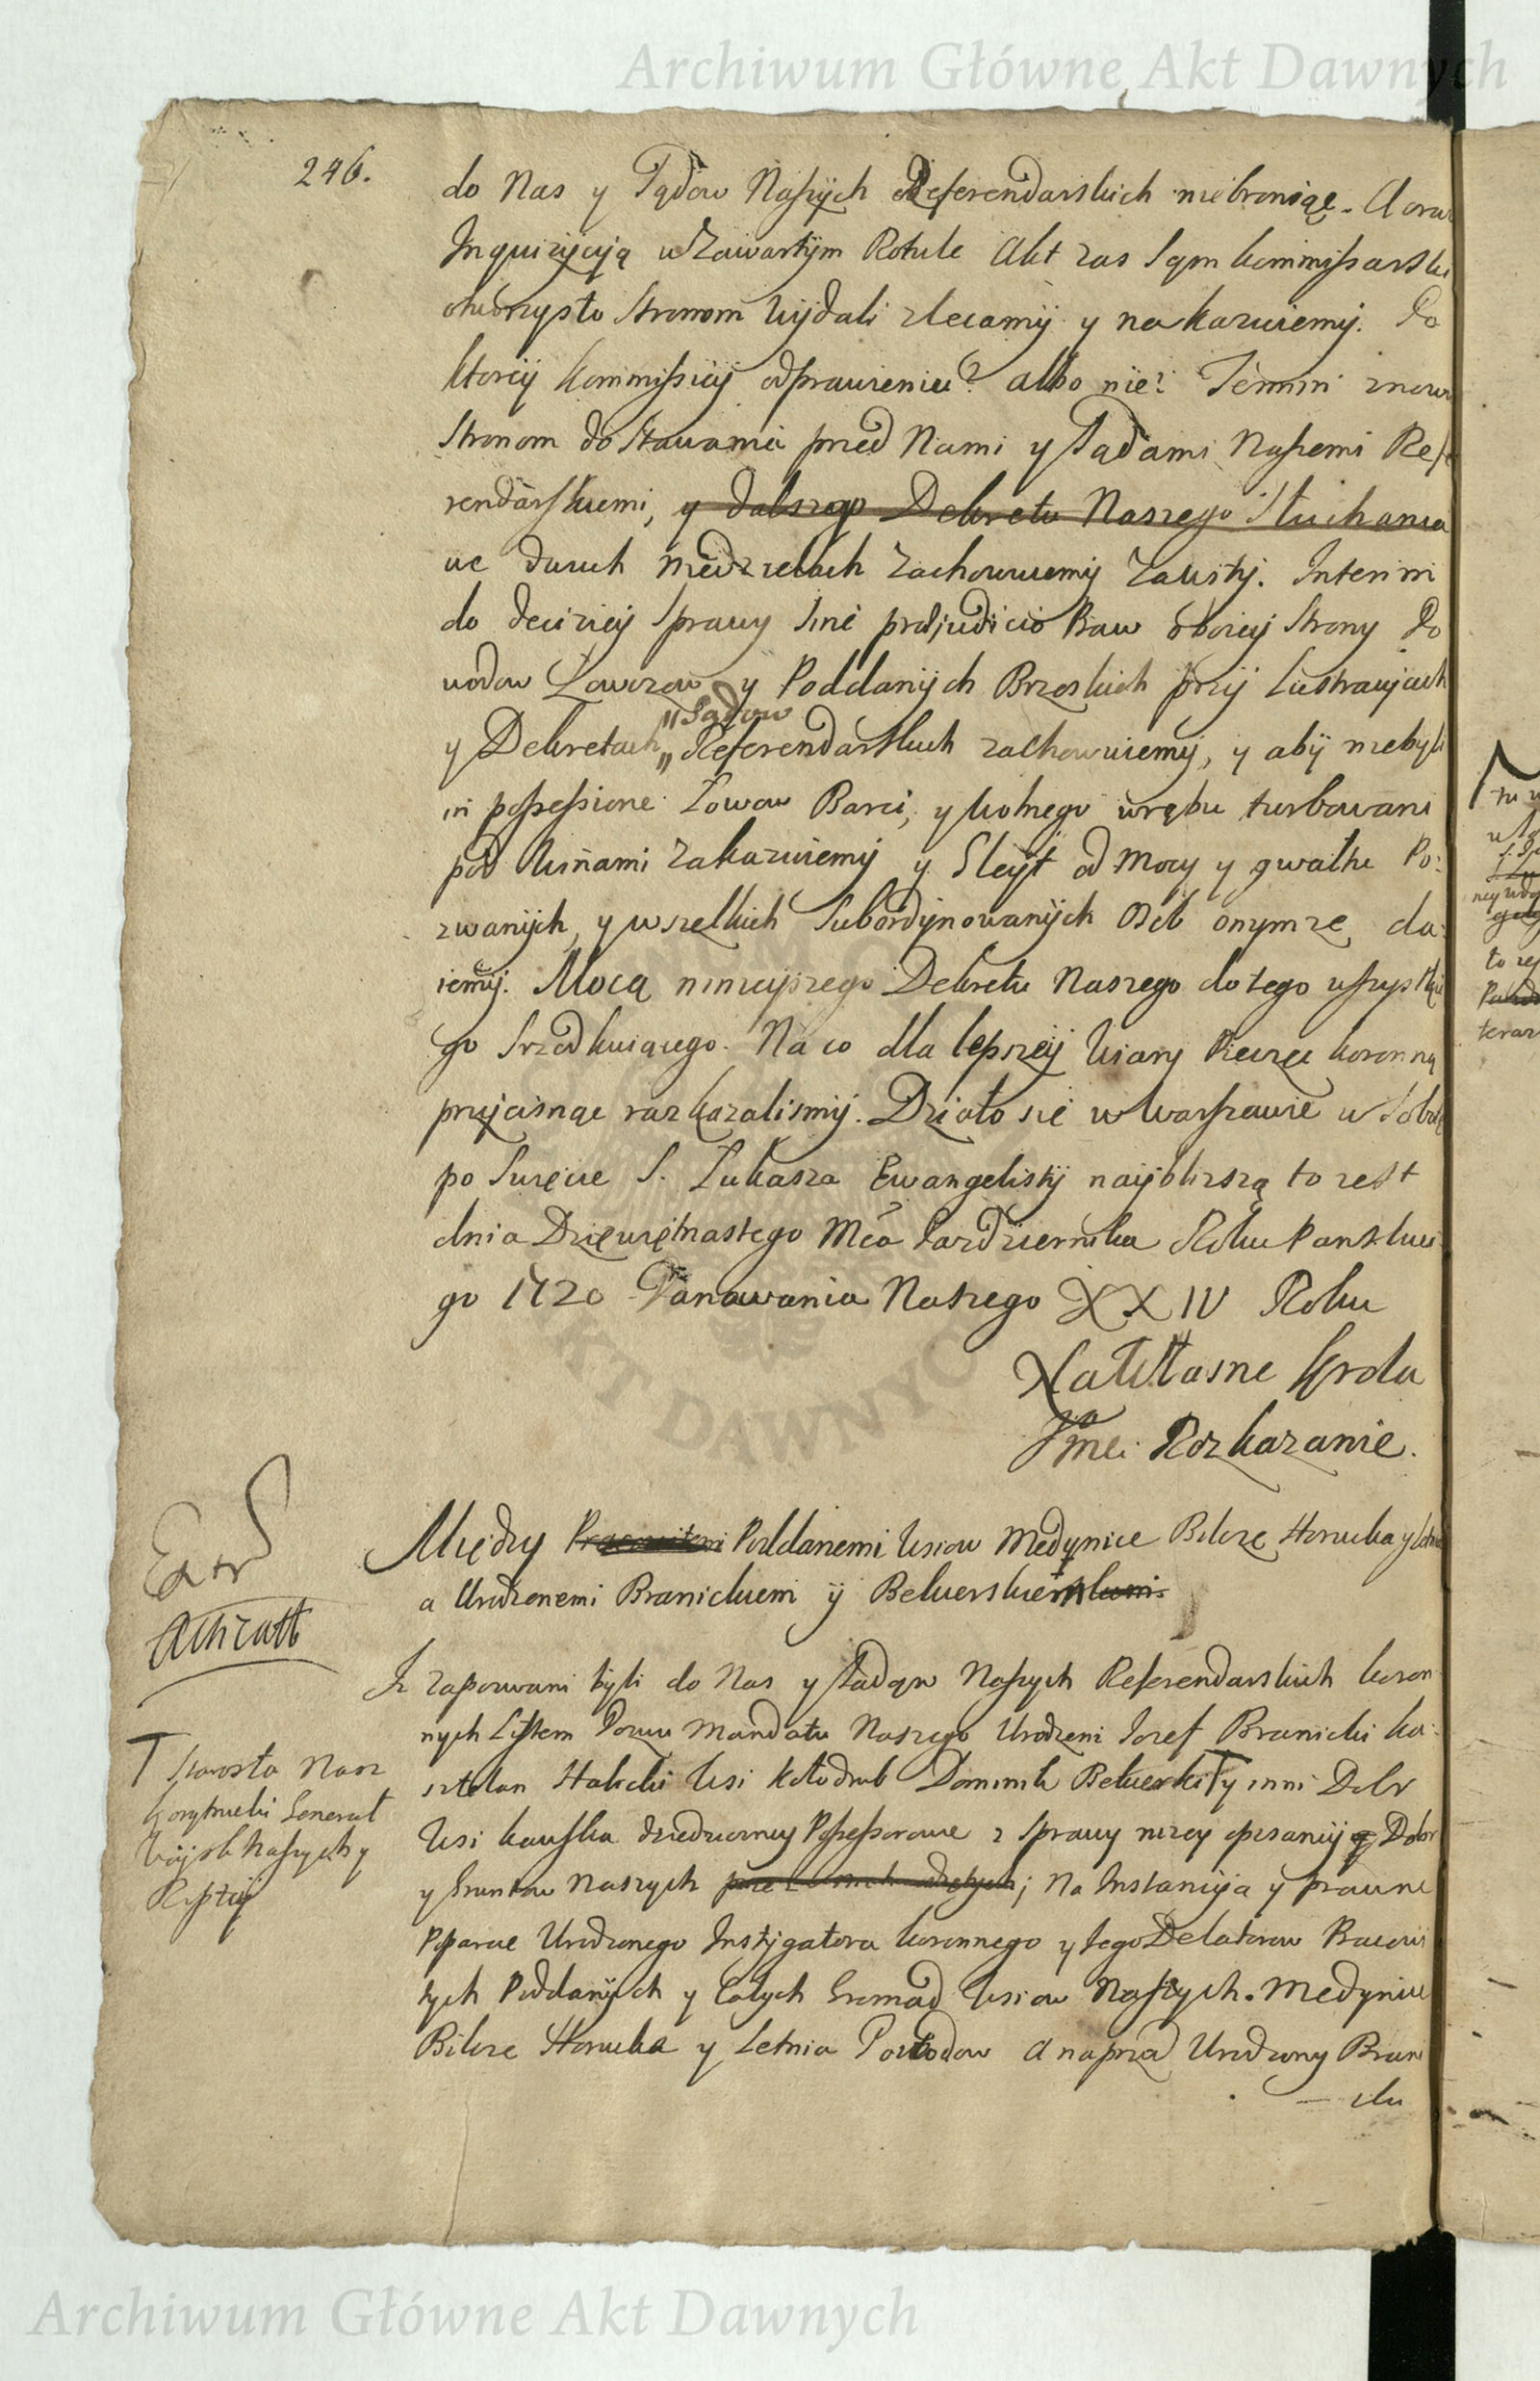 Archiwum Główne Akt Dawnych
246.
do Nas y Sądow Naszych Referendarskich niebroniąc. A oraz
Inquizycyą w Zawartym Rotule Akt zas Sąm kommissarski
otworzysto Stronom wydali zlecamy y nakazuiemy. Po
ktorey kommissiey odprawieniu? albo nie? Termin znowu
Stronom do Stawania przed Nami y Sądami Naszemi Refe
rendarskiemi, y dalszego Dekretu Naszego Słuchania
we dwuch niedzielach zachowuiemy Zawity. Interim
do deciziey Sprawy sine præjudicio Praw oboiey Strony Po
wodow Łowczow y Poddanych Brzeskich przy Lustracyach
y Dekretach " Sądow " Referendarskich zachowuiemy, y aby niebyli
in possessione Łowow Barci, y wolnego wrębu turbowani
pod Winami zakazuiemy y Gleyt od Mocy y gwałtu Po:
zwanych, y wszelkich Subordynowanych Osob onymze da:
iemy. Mocą ninieyszego Dekretu Naszego do tego wszystkie
go Srzodkuiącego. Na co dla lepszey Wiary Pieczęc koronną
przycisnąc rozkazalismy. Działo się w Warszawie w Sobotę
po Swięcie S. Łukasza Ewangelisty nayblizszą to iest
dnia Dziewiętnastego Mca Pazdziernika Roku Panskie
go 1720 Panowania Naszego XXIV Roku
Na Własne Krola
Jmci Rozkazanie.
Między Pracowitemi Poddanemi Wsiow Medynice Bilcze Horucka y Letnia
a Urodzonemi Branickiem y Bekierskiem
Iz zapozwani byli do Nas y Sądow Naszych Referendarskich koron
nych Listem Pozwu Mandatu Naszego Urodzeni Jozef Branicki ka:
sztelan Halicki Wsi Kołodrub Dominik Bekierski T y inni Dobr
Wsi dziedziczney Possessorowie z Sprawy nizey opisaney Dobr
y Gruntow Naszych; Na Instancyą y prawne
Poparcie Urodzonego Instygatora koronnego y Iego Delatorow Pracowi
tych Poddanych y Całych Gromad Wsiow Naszych. Medynice
Bilcze Horucka y Letnia Powodow A naprzod Urodzony Brani
cki
T Starosta Nasz
Korytnicki Generał
Woysk Naszych y
Rzpltey
Archiwum Główne Akt Dawnych